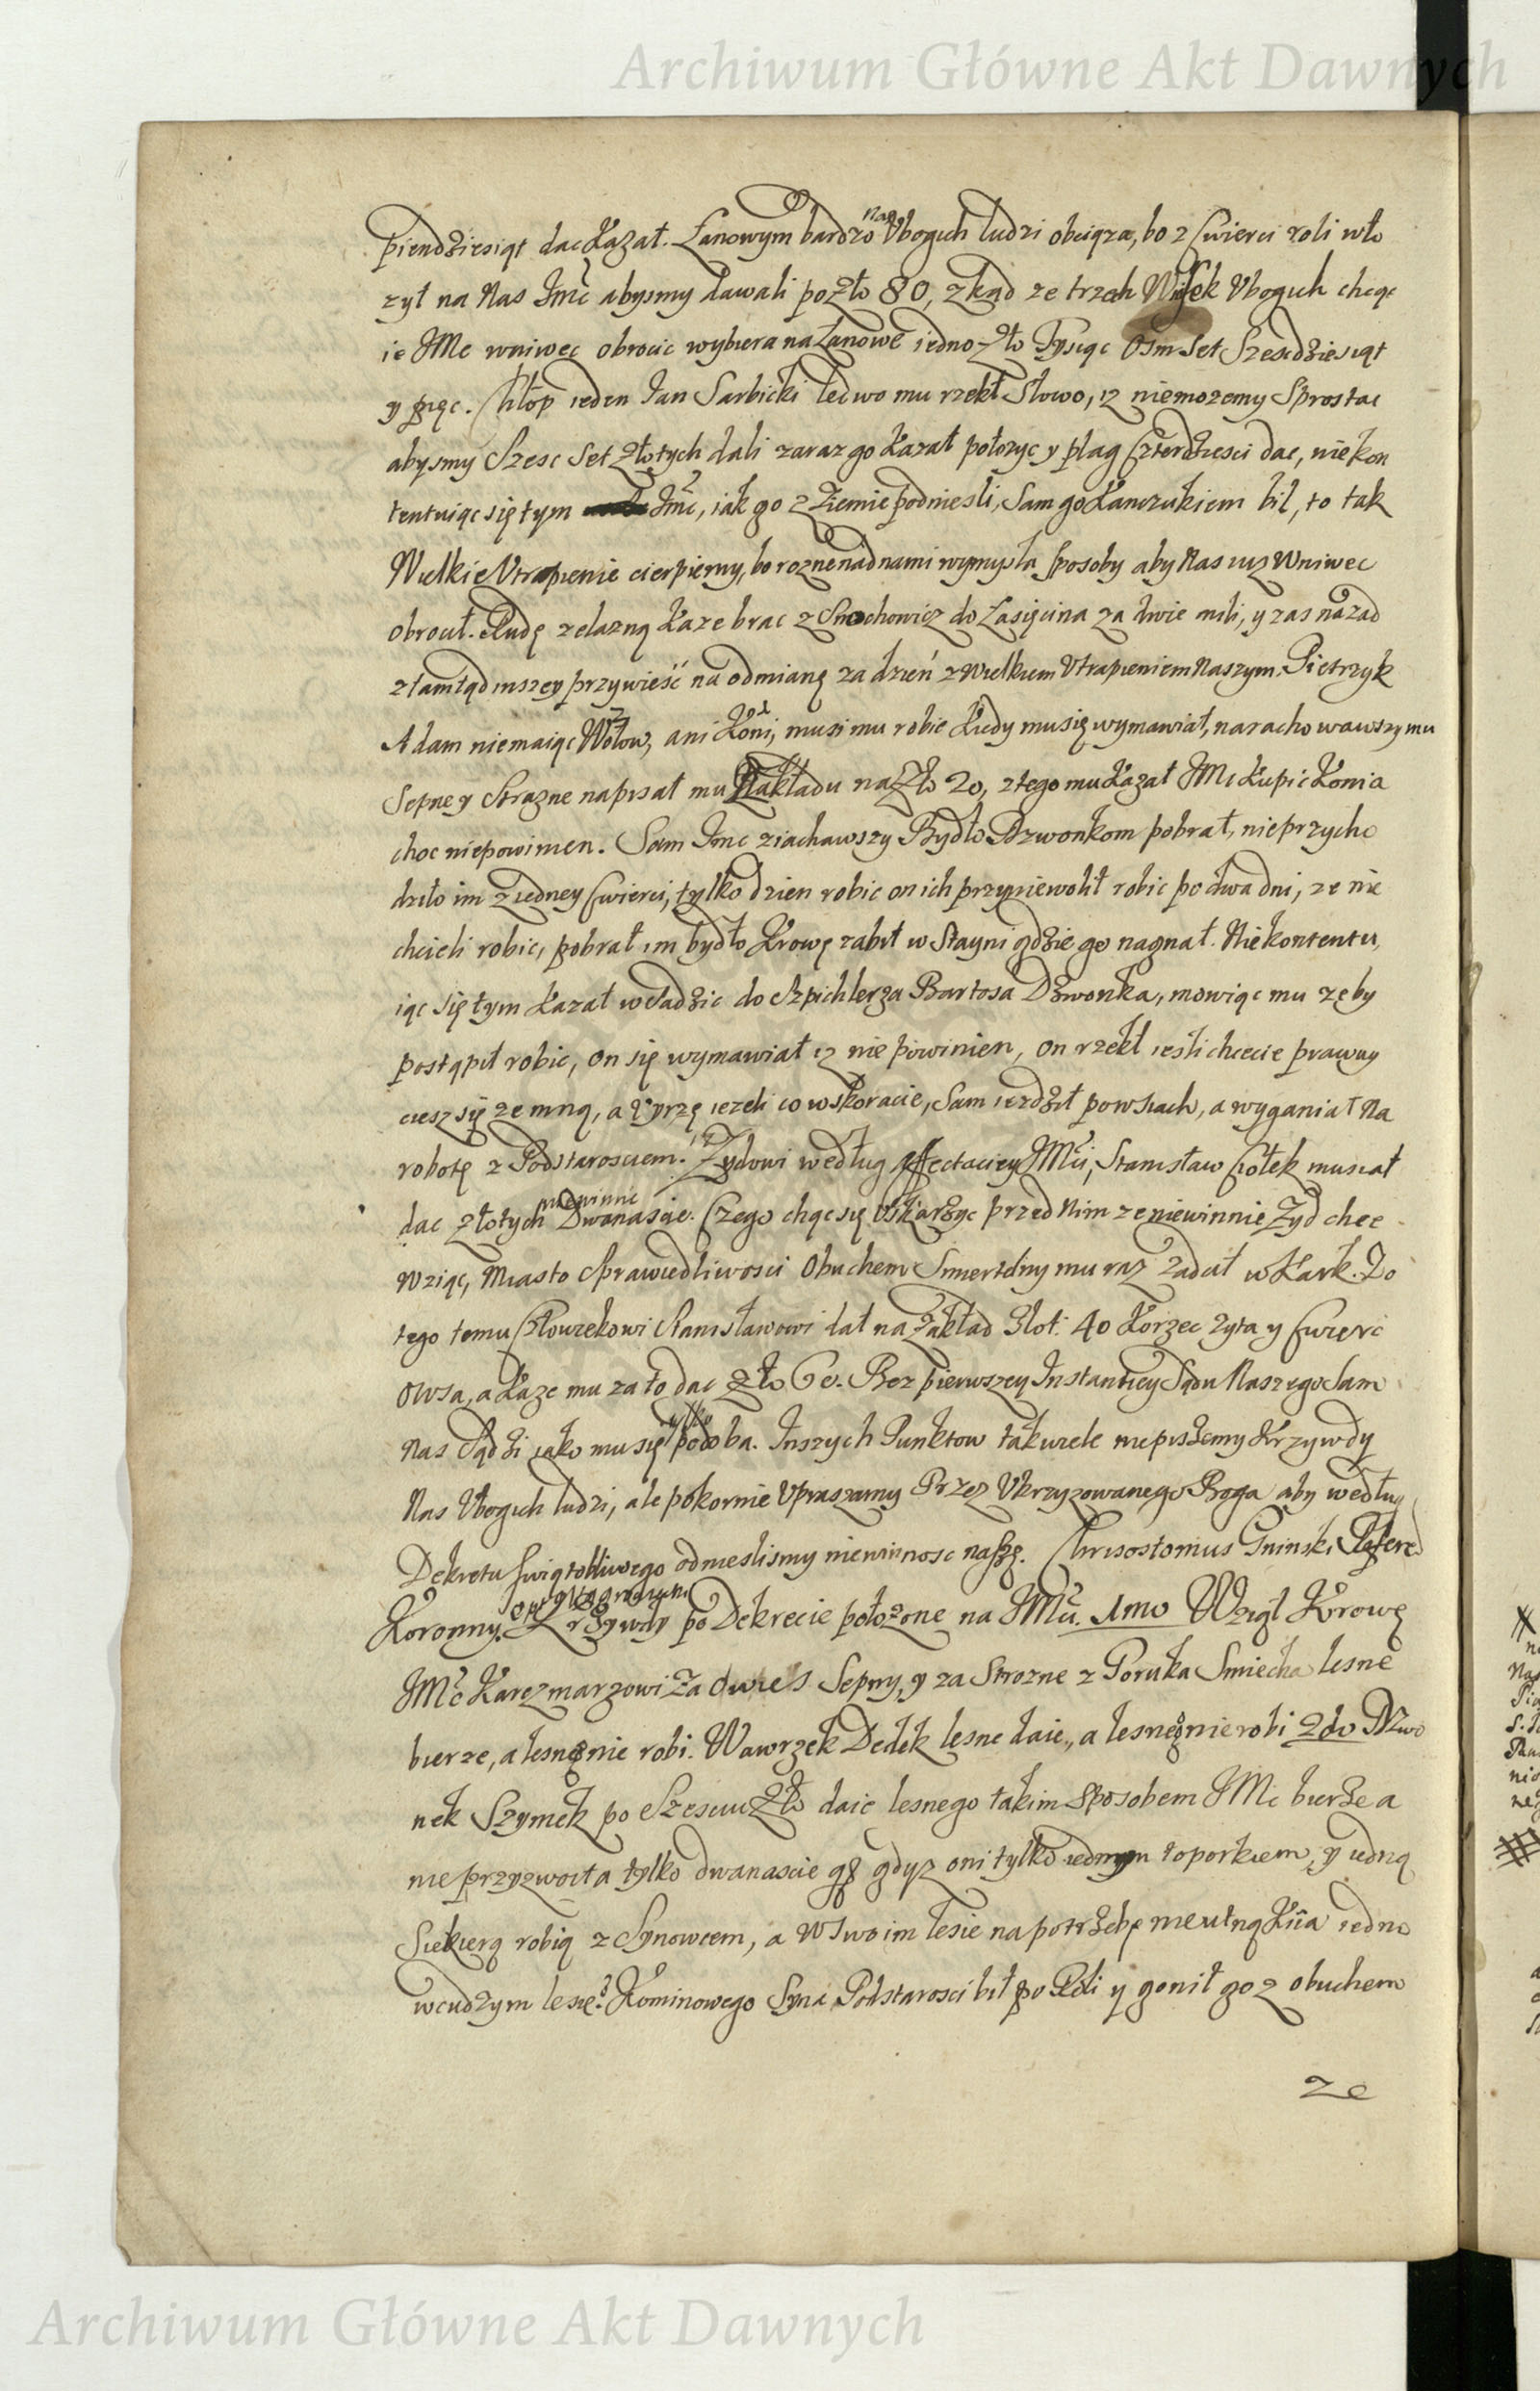 Archiwum Główne Akt Dawnych
piendziesiąt dac kazał. Łanowym bardzo nas Vbogich ludzi obciąza, bo z Cwierci roli wło
zył na Nas Jmć abysmy dawali po Zło 80, zkąd ze trzech Wiosek Vbogich chcąc
ie JMc wniwec obrocic wybiera na Łanowe iedno Zło Tysiąc Osm Set Szescdziesiąt
y pięc. Chłop ieden Jan Sarbicki ledwo mu rzekł Słowo, iz niemozemy Sprostac
abysmy Szesc Set Złotych dali zaraz go kazał połozyc y plag Czterdziesci dac, niekon
tentuiąc się tym Jmć, iak go z Ziemie podniesli, Sam go Kanczukiem bił, to tak
Wielkie Vtrapienie cierpiemy, bo rozne nad nami wymysla sposoby aby Nas iuz Wniwec
obrocił. Rudę zelazną kaze brac z Smochowicz do Łasięcina za dwie mili, y zas nazad
z tamtąd inszey przywieść na odmianę za dzień z Wielkiem Vtrapieniem Naszym. Pietrzyk
Adam niemaiąc Wołow, ani Koni, musi mu robic kiedy mu się wymawiał, narachowawszy mu
Sepne y Strazne napisał mu Zakładu na Zło 20, z tego mu kazał JMc kupic Konia
choc niepowinien. Sam Jmc ziachawszy Bydło Dzwonkom pobrał, nieprzycho
dziło im z iedney Cwierci, tylko dzien robic on ich przyniewolił robic po dwa dni, ze nie
chcieli robic, pobrał im bydło Krowę zabił w Stayni gdzie go nagnał. Niekontentu
iąc się tym kazał wsadzic do Szpichlerza Bartosa Dzwonka, mowiąc mu zeby
postąpił robic, on się wymawiał iz nie powinien, on rzekł iesli chcecie prawuy
ciesz się zemną, a Vyrzę iezeli co wskoracie, Sam iezdził powsiach, a wyganiał na
robotę z Podstarosciem. Zydowi według affectaciey JMći, Stanisław Ciołek musiał
niewinnie
dac złotych Dwanascie. Czego chcąc się Vskarzyc przed Nim ze niewinnie Zyd chce
Wziąc, Miasto Sprawiedliwosci Obuchem Smiertelny mu raz zadał w Kark. Do
tego temu Człowiekowi Stanisławowi dał na Zakład Złot: 40 Korzec zyta y Cwierc
owsa, a kaze mu za to dac Zło 60. Bez pierwszey Instantiey Sądu Naszego Sam
Nas Sądzi iako mu się tylko podoba. Inszych Punktow tak wiele niepiszemy Krzywdy
Nas Vbogich ludzi, ale pokornie Vpraszamy Przez Vkrzyzowanego Boga aby według
Dekretu Swiątobliwego odnieslismy niewinnosc naszę. Chrisostomus Gninski Refere
Koronny. Krzywdy po Dekrecie połozone na JMći. 1mo Wziął Krowę
JMć Karczmarzowi Za Owies Sepny, y za Strozne z Poruka Smiecha lesne
bierze, a lesnego nie robi. Wawrzek Dedek lesne daie, a lesnego nie robi 2do Dzwo
nek Szymek po Szesciu Zło daie lesnego takim sposobem JMc bierze a
nie przyzwoita tylko dwanascie gr gdyz oni tylko iednym toporkiem, y iedną
Siekierą robią z Synowcem, a w Swoim lesie na potrzebę nie utną Kiia iedno
wcudzym lesie. Kominowego Syna Podstarosci bił po Roli y gonił go z obuchem
ze
Archiwum Główne Akt Dawnych